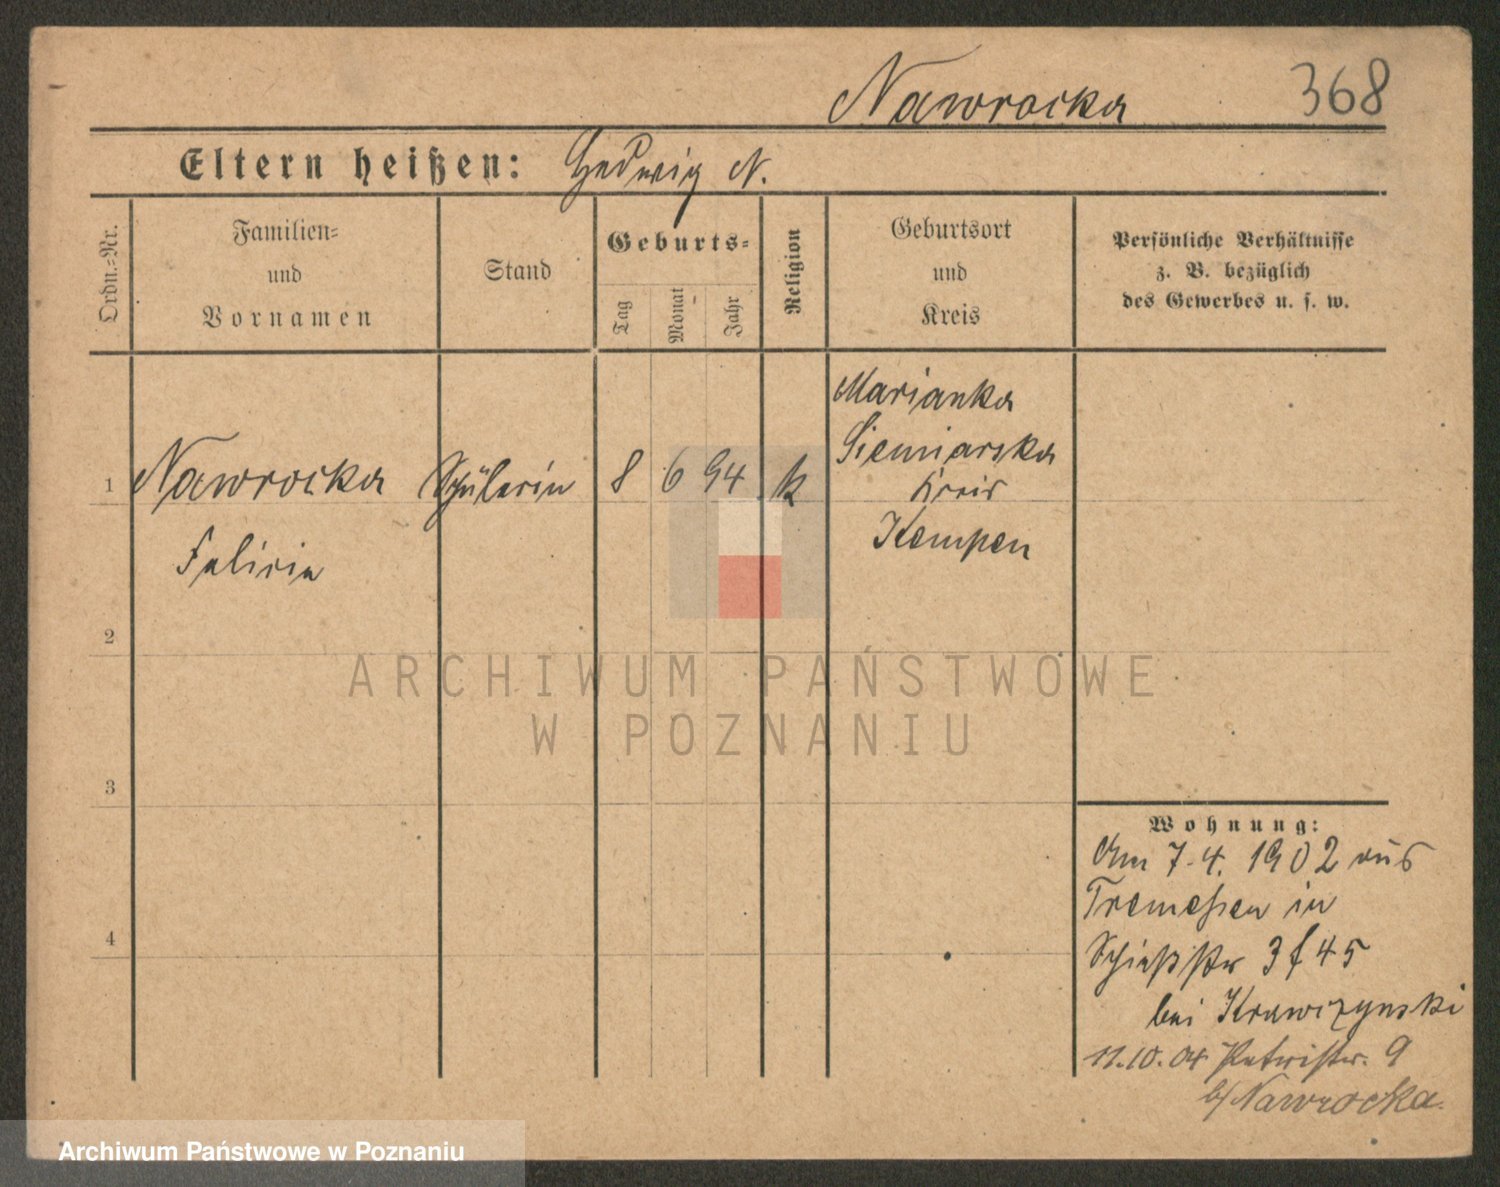 Nawrocka 368
Eltern heißen: Hedwig N.
Ordn.-Nr.
Familien-
und
Vornamen
Stand
Geburts-
Tag
Monat
Jahr
Religion
Geburtsort
und
Kreis
Persönliche Verhältnisse
z. B. bezüglich
des Gewerbes u. s. w.
Marianka
Siemiarska
1 Nawrocka Schülerin 8 6 94 k Kreis
Felicia Kempen
2
ARCHIWUM PAŃSTWOWE
W POZNANIU
3
Wohnung:
Am 7.4.1902 aus
Tremeßen in
4
Schießstr 3 f 45
bei Krawczynski
11.10.04 9
b/ Nawrocka.
Archiwum Państwowe w Poznaniu